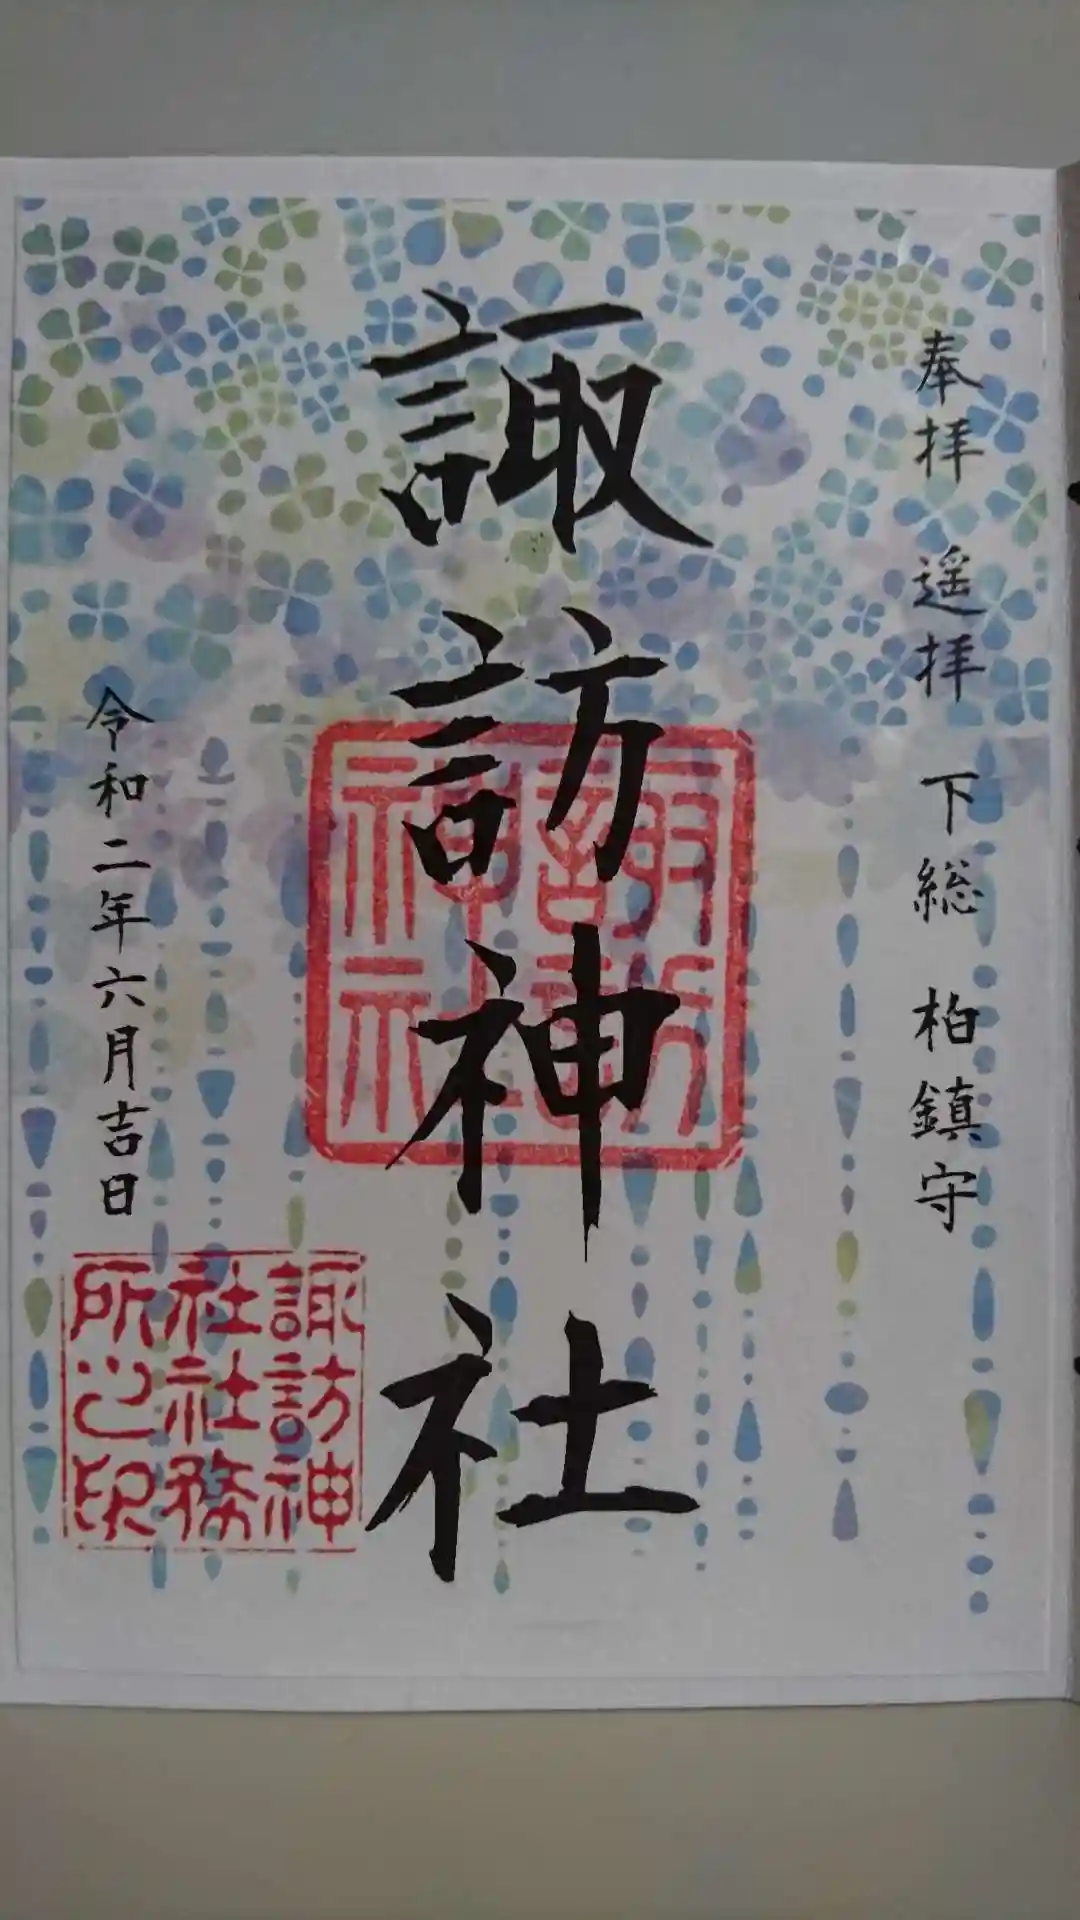 奉拝 遥拝 下総 柏鎮守
諏訪神社
諏訪
神社
令和二年六月吉日
諏訪神
社社務
所之印